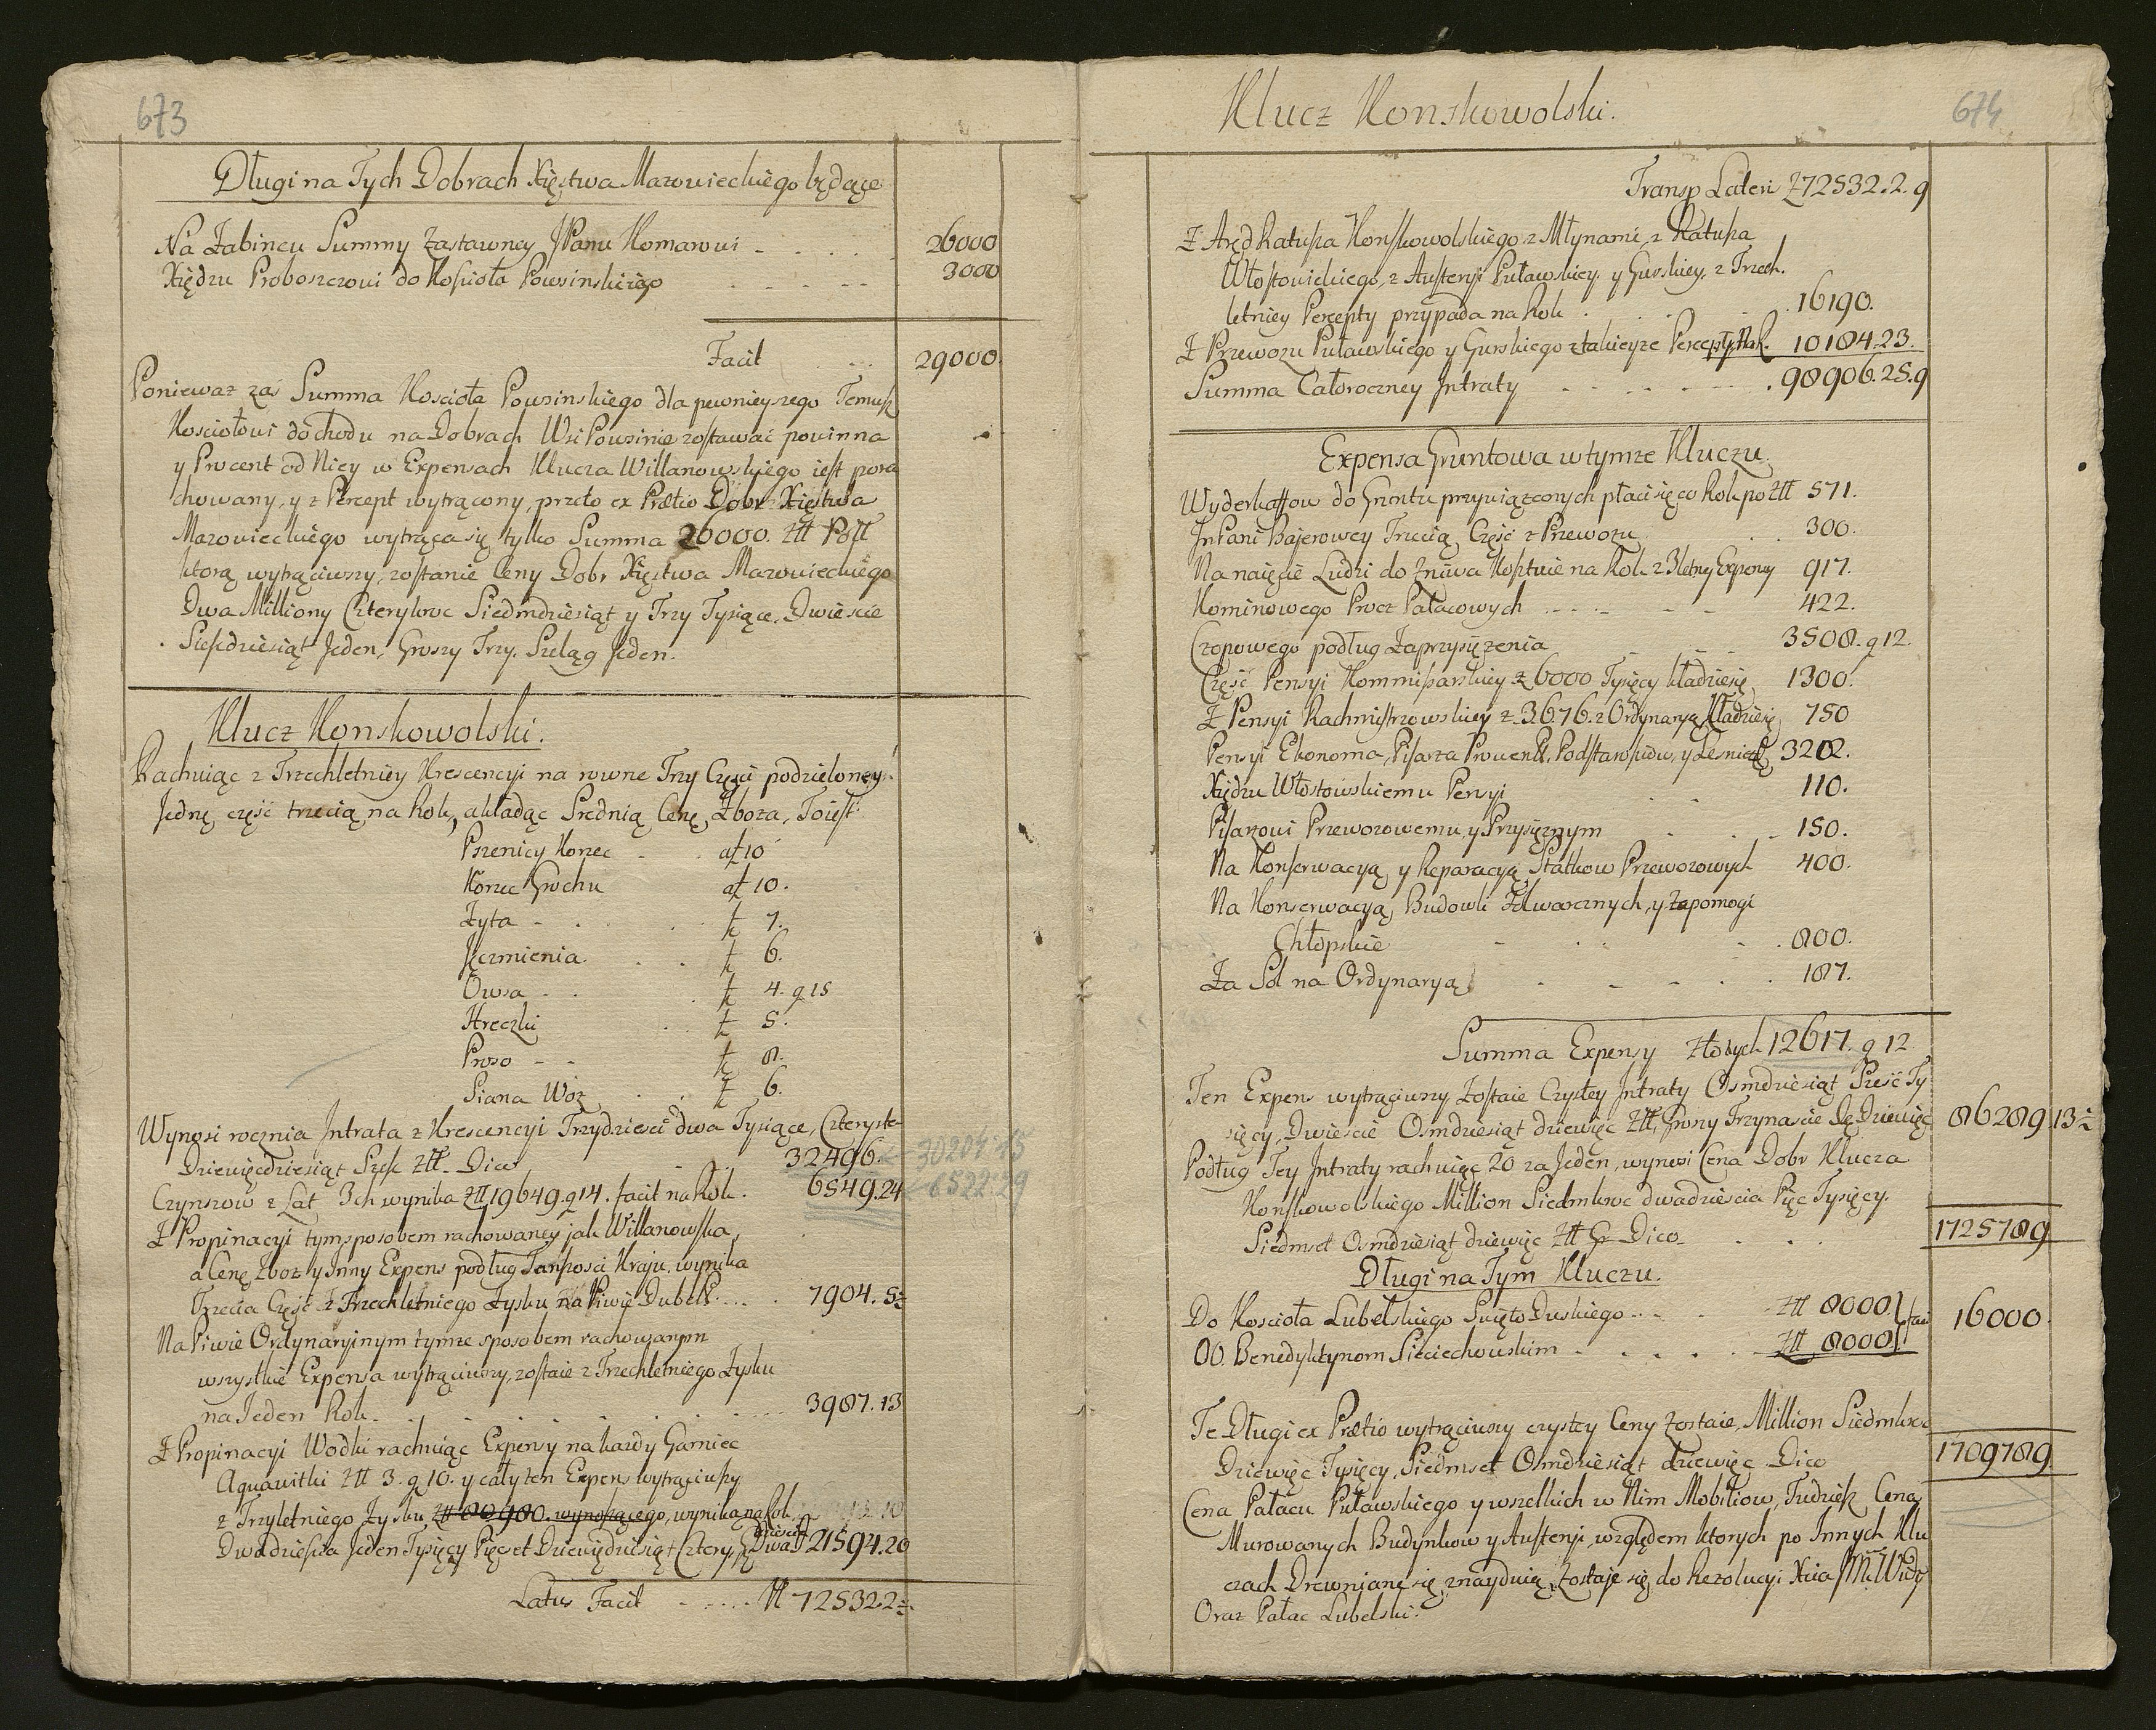 673
Długi na Tych Dobrach Xięstwa Mazowieckiego będące
Na Żabincu Summy Zastawney JPanu Komarowi - - - - - 26000
Xiędzu Proboszczowi do Kościoła Powsinskiego - - - - - 3000
Facit - - - 29000
Ponieważ zaś Summa Kościoła Powsinskiego dla pewnieyszego Temuż
Kościołowi dochodu na Dobrach Wsi Powsinie zostawać powinna
y Procent od Niey w Expensach Klucza Willanowskiego iest pora
chowany, y z Percept wytrącony, przeto ex Prætio Dobr Xięstwa
Mazowieckiego wytrąca się tylko Summa 26000. Złł Poll
ktorą wytrąciwszy, zostanie Ceny Dobr Xięstwa Mazowieckiego
Dwa Milliony Czterykroc Siedmdziesiąt y Trzy Tysiące, Dwiescie
Sześdziesiąt Jeden, Groszy Trzy. Szeląg Jeden.
Klucz Konskowolski.
Rachuiąc z Trzechletniey Krescencyi na rowne Trzy Części podzieloney
Jednę część trzecią na Rok, a kładąc Srednią Cenę Zboża, Toiest:
Pszenicy Korzec - - a ƚ 10
Korzec Grochu a ƚ 10.
Żyta - - - ƚ 7.
Jęczmienia. - - ƚ 6.
Owsa - - - ƚ 4. g 15
Hreczki - - ƚ 5.
Proso - - ƚ 8.
Siana Woz - - ƚ 6.
Wynosi rocznia Intrata z Krescencyi Trzydziesci dwa Tysiące, Czterysta
Dziewięcdziesiąt Szeć Złł Dico - - 32496. 30204.15
Czynszow z Lat 3ch wynika Złł 19649. g 14. facit na Rok. 6549.24 6522.29
Z Propinacyi tym sposobem rachowaney jak Willanowska,
a Cenę Zboż y Inny Expens podług Tanszosci Kraju, wynika
Trzecia Część z Trzechletniego Zysku na Piwie Dubelt. - - - 7904. 5½
Na Piwie Ordynaryinym tymże sposobem rachowanym
wszystkie Expensa wytrąciwszy, zostaie z Trzechletniego Zysku
na Jeden Rok - - - - - - - 3987.13
Z Propinacyi Wodki rachuiąc Expensy na każdy Garniec
Aquawitki Złł 3. g 10. y cały ten Expens wytrąciwszy
z Trzyletniego Zysku Złł 80980. wynoszącego, wynika na Rok
Dwadzieścia Jeden Tysięcy Pięcset Dziewiędziesiąt Cztery, g Dwadziescia 21594.20
Latus Facit - - - - - Złł 72532.2½
Klucz Konskowolski.
674
Transp Lateri Z 72532.2.9
Z Aręd Ratusza Konskowolskiego z Młynami, z Ratusza
Włostowickiego, z Austeryi Puławskiey y Gurskiey, z Trzech.
letniey Percepty przypada na Rok - - - 16190.
Z Przewozu Puławskiego y Gurskiego z takieyże Percepty na R. 10184.23.
Summa Całoroczney Intraty - - - - - 98906.25.9
Expensa Gruntowa w tymże Kluczu.
Wyderkaffow do Gruntu przywiązconych płaci się co Rok po Złł 571.
JnPani Bajerowey Trzecią Część z Przewozu - - 300.
Na naięcie Ludzi do Żniwa Kosztuie na Rok z 3letney Expensy 917.
Kominowego Procz Pałacowych - - - - - 422.
Czopowego podług Zaprzysiężenia - - - 3508. g 12.
Część Pensyi Kommissarskiey z 6000 Tysięcy kładzie się 1300.
Z Pensyi Rachmistrzowskiey z 3676. z Ordynaryą kładzie się 750
Pensyi Ekonoma, Pisarza Prowent, Podstarościow, y Lesniczeg 3202.
Xiędzu Włostowskiemu Pensyi - - 110.
Pisarzowi Przewozowemu y Przysiężnym - - - 150.
Na Konserwacyą y Reparacyą Statkow Przewozowych 400.
Na Konserwacyą Budowli Folwarcznych, y Zapomogi
Chłopskie - - - - 800.
Za Sol na Ordynaryą - - - - - 187.
Summa Expensy Złotych 12617. g 12
Ten Expens wytrąciwszy Zostaie Czystey Intraty Osmdziesiąt Sześć Ty
sięcy, Dwiescie Osmdziesiąt dziewięc Złł, Groszy Trzynascie Dziewięc 86289.13½
Podług Tey Intraty rachuiąc 20 za Jeden, wynosi Cena Dobr Klucza
Konskowolskiego Million Siedmkroc dwadziescia Pięc Tysięcy.
Siedmset Osmdziesiąt dziewięc Złł Gr Dico - - - 1725789
Długi na Tym Kluczu.
Do Kościoła Lubelskiego Swięto Duskiego - - - Złł 8000 } faci 16000.
OO. Benedyktynom Sieciechowskim - - - - - Złł 8000
Te Długi ex Prætio wytrąciwszy czystey Ceny Zostaie, Million Siedmkroc
Dziewięc Tysięcy, Siedmset Osmdziesiąt dziewięc Dico 1709789
Cena Pałacu Puławskiego y wszelkich w Nim Mobiliow, Tudzież Cena
Murowanych Budynkow y Austeryi, względem ktorych po Innych Klu
czach Drewniane się znayduią, Zostaje się do Rezolucyi Xcia
Oraz Pałac Lubelski.